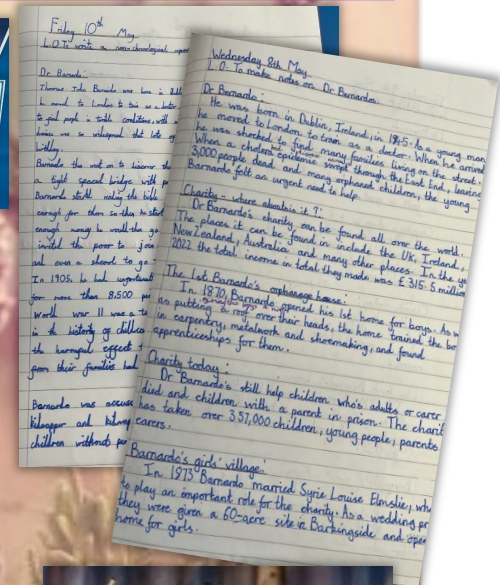 Friday 10th May
L.O: To write a non-chronological report
Dr Barnardo:
Thomas John Barnardo was born in
he moved to London to train as a
to find people in terrible conditions, with
disease was so widespread that
Barnardo the went on to discover the
a tight spaced bridge with
Barnardo started making the
enough for them so they he start
enough money he would then go
invited the poor to join
and even a shood to go
In 1905, he had unfortunate
for more than 8,500
World War II was a
in the history of childca
the harmful effect
from their families had
Barnardo was accuse
kidnapper and
children without
Wednesday 8th May
L.O: To make notes on Dr Barnardos.
Dr Barnardo:
He was born in Dublin, Ireland, in 1845. As a young man
he moved to London to train as a doctor. When he arrived
he was shocked to find many families living on the street.
When a cholera epidemic swept through the East End, leaving
3,000 people dead and many orphaned children, the young
Barnardo felt an urgent need to help.
Charity - where abouts is it ?:
Dr Barnardo's charity can be found all over the world.
The places it can be found in include the UK, Ireland,
New Zealand, Australia and many other places. In the y
2022 the total income in total they made was £315.5 million
The 1st Barnardo's orphanage house:
In 1870, Barnardo opened his 1st home for boys. As w
as putting a roof over their heads, the home trained the bo
in carpentry, metalwork and shoemaking, and found
apprenticeships for them.
Charity today:
Dr Barnardo's still help children who's adults or carer
died and children with a parent in prison. The charit
has taken over 357,000 children, young people, parents
carers.
Barnardo's girls' village:
In 1873 Barnardo married Syrie Louise Elmslie, who
to play an important role for the charity. As a wedding pr
they were given a 60-acre site in Barkingside and ope
home for girls.